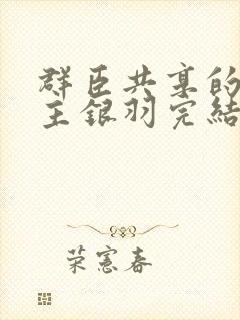 群臣共享的
主銀羽完結
荣憲春